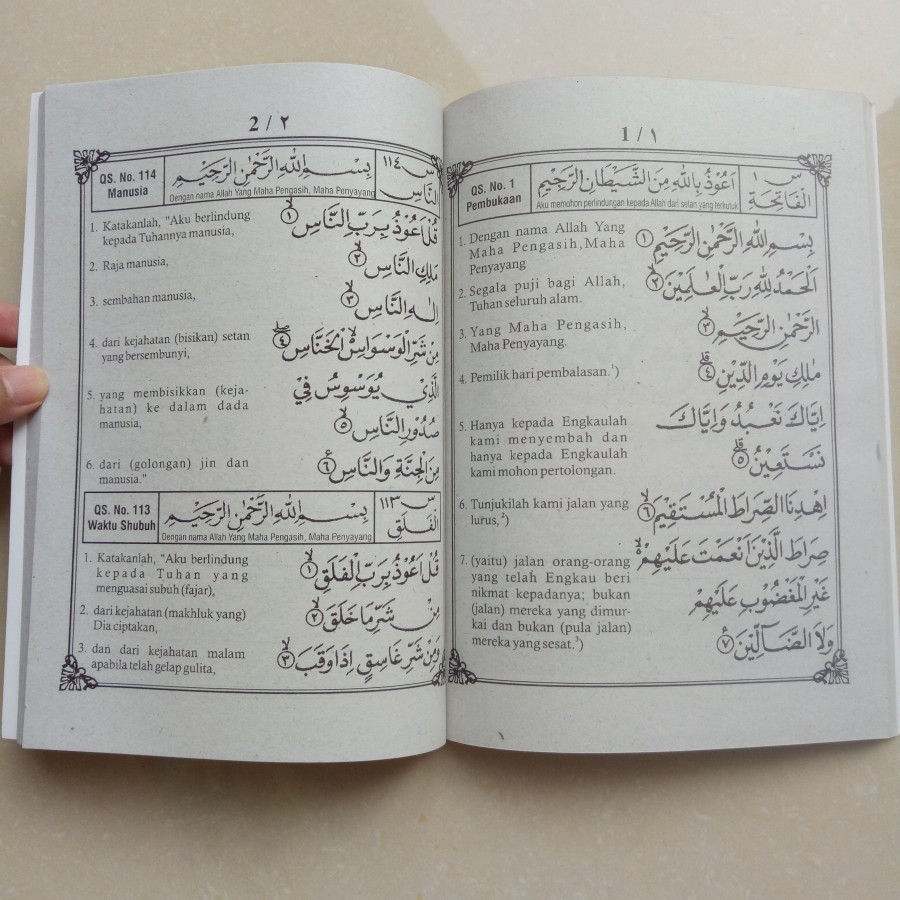 1 / ١
QS. No. 1
Pembukaan
اَعُوْذُ بِاللّٰهِ مِنَ الشَّيْطَانِ الرَّجِيْمِ
Aku memohon perlindungan kepada Allah dari setan yang terkutuk
س ١
الْفَاتِحَة
1. Dengan nama Allah Yang
Maha Pengasih,Maha
Penyayang
بِسْمِ اللّٰهِ الرَّحْمٰنِ الرَّحِيْمِ ١
2. Segala puji bagi Allah,
Tuhan seluruh alam.
اَلْحَمْدُ لِلّٰهِ رَبِّ الْعٰلَمِيْنَ ٢
3. Yang Maha Pengasih,
Maha Penyayang.
الرَّحْمٰنِ الرَّحِيْمِ ٣
4. Pemilik hari pembalasan.¹)
مٰلِكِ يَوْمِ الدِّيْنِ ٤
5. Hanya kepada Engkaulah
kami menyembah dan
hanya kepada Engkaulah
kami mohon pertolongan.
اِيَّاكَ نَعْبُدُ وَاِيَّاكَ
نَسْتَعِيْنُ ٥
6. Tunjukilah kami jalan yang
lurus,²)
اِهْدِنَا الصِّرَاطَ الْمُسْتَقِيْمَ ٦
7. (yaitu) jalan orang-orang
yang telah Engkau beri
nikmat kepadanya; bukan
(jalan) mereka yang dimur-
kai dan bukan (pula jalan)
mereka yang sesat.³)
صِرَاطَ الَّذِيْنَ اَنْعَمْتَ عَلَيْهِمْ
غَيْرِ الْمَغْضُوْبِ عَلَيْهِمْ
وَلَا الضَّاۤلِّيْنَ ٧
2 / ٢
QS. No. 114
Manusia
بِسْمِ اللّٰهِ الرَّحْمٰنِ الرَّحِيْمِ
Dengan nama Allah Yang Maha Pengasih, Maha Penyayang
س ١١٤
النَّاس
1. Katakanlah, "Aku berlindung
kepada Tuhannya manusia,
قُلْ اَعُوْذُ بِرَبِّ النَّاسِ ١
2. Raja manusia,
مَلِكِ النَّاسِ ٢
3. sembahan manusia,
اِلٰهِ النَّاسِ ٣
4. dari kejahatan (bisikan) setan
yang bersembunyi,
مِنْ شَرِّ الْوَسْوَاسِ الْخَنَّاسِ ٤
5. yang membisikkan (keja-
hatan) ke dalam dada
manusia,
الَّذِيْ يُوَسْوِسُ فِيْ
صُدُوْرِ النَّاسِ ٥
6. dari (golongan) jin dan
manusia."
مِنَ الْجِنَّةِ وَالنَّاسِ ٦
QS. No. 113
Waktu Shubuh
بِسْمِ اللّٰهِ الرَّحْمٰنِ الرَّحِيْمِ
Dengan nama Allah Yang Maha Pengasih, Maha Penyayang
س ١١٣
الْفَلَق
1. Katakanlah, "Aku berlindung
kepada Tuhan yang
menguasai subuh (fajar),
قُلْ اَعُوْذُ بِرَبِّ الْفَلَقِ ١
2. dari kejahatan (makhluk yang)
Dia ciptakan,
مِنْ شَرِّ مَا خَلَقَ ٢
3. dan dari kejahatan malam
apabila telah gelap gulita,
وَمِنْ شَرِّ غَاسِقٍ اِذَا وَقَبَ ٣